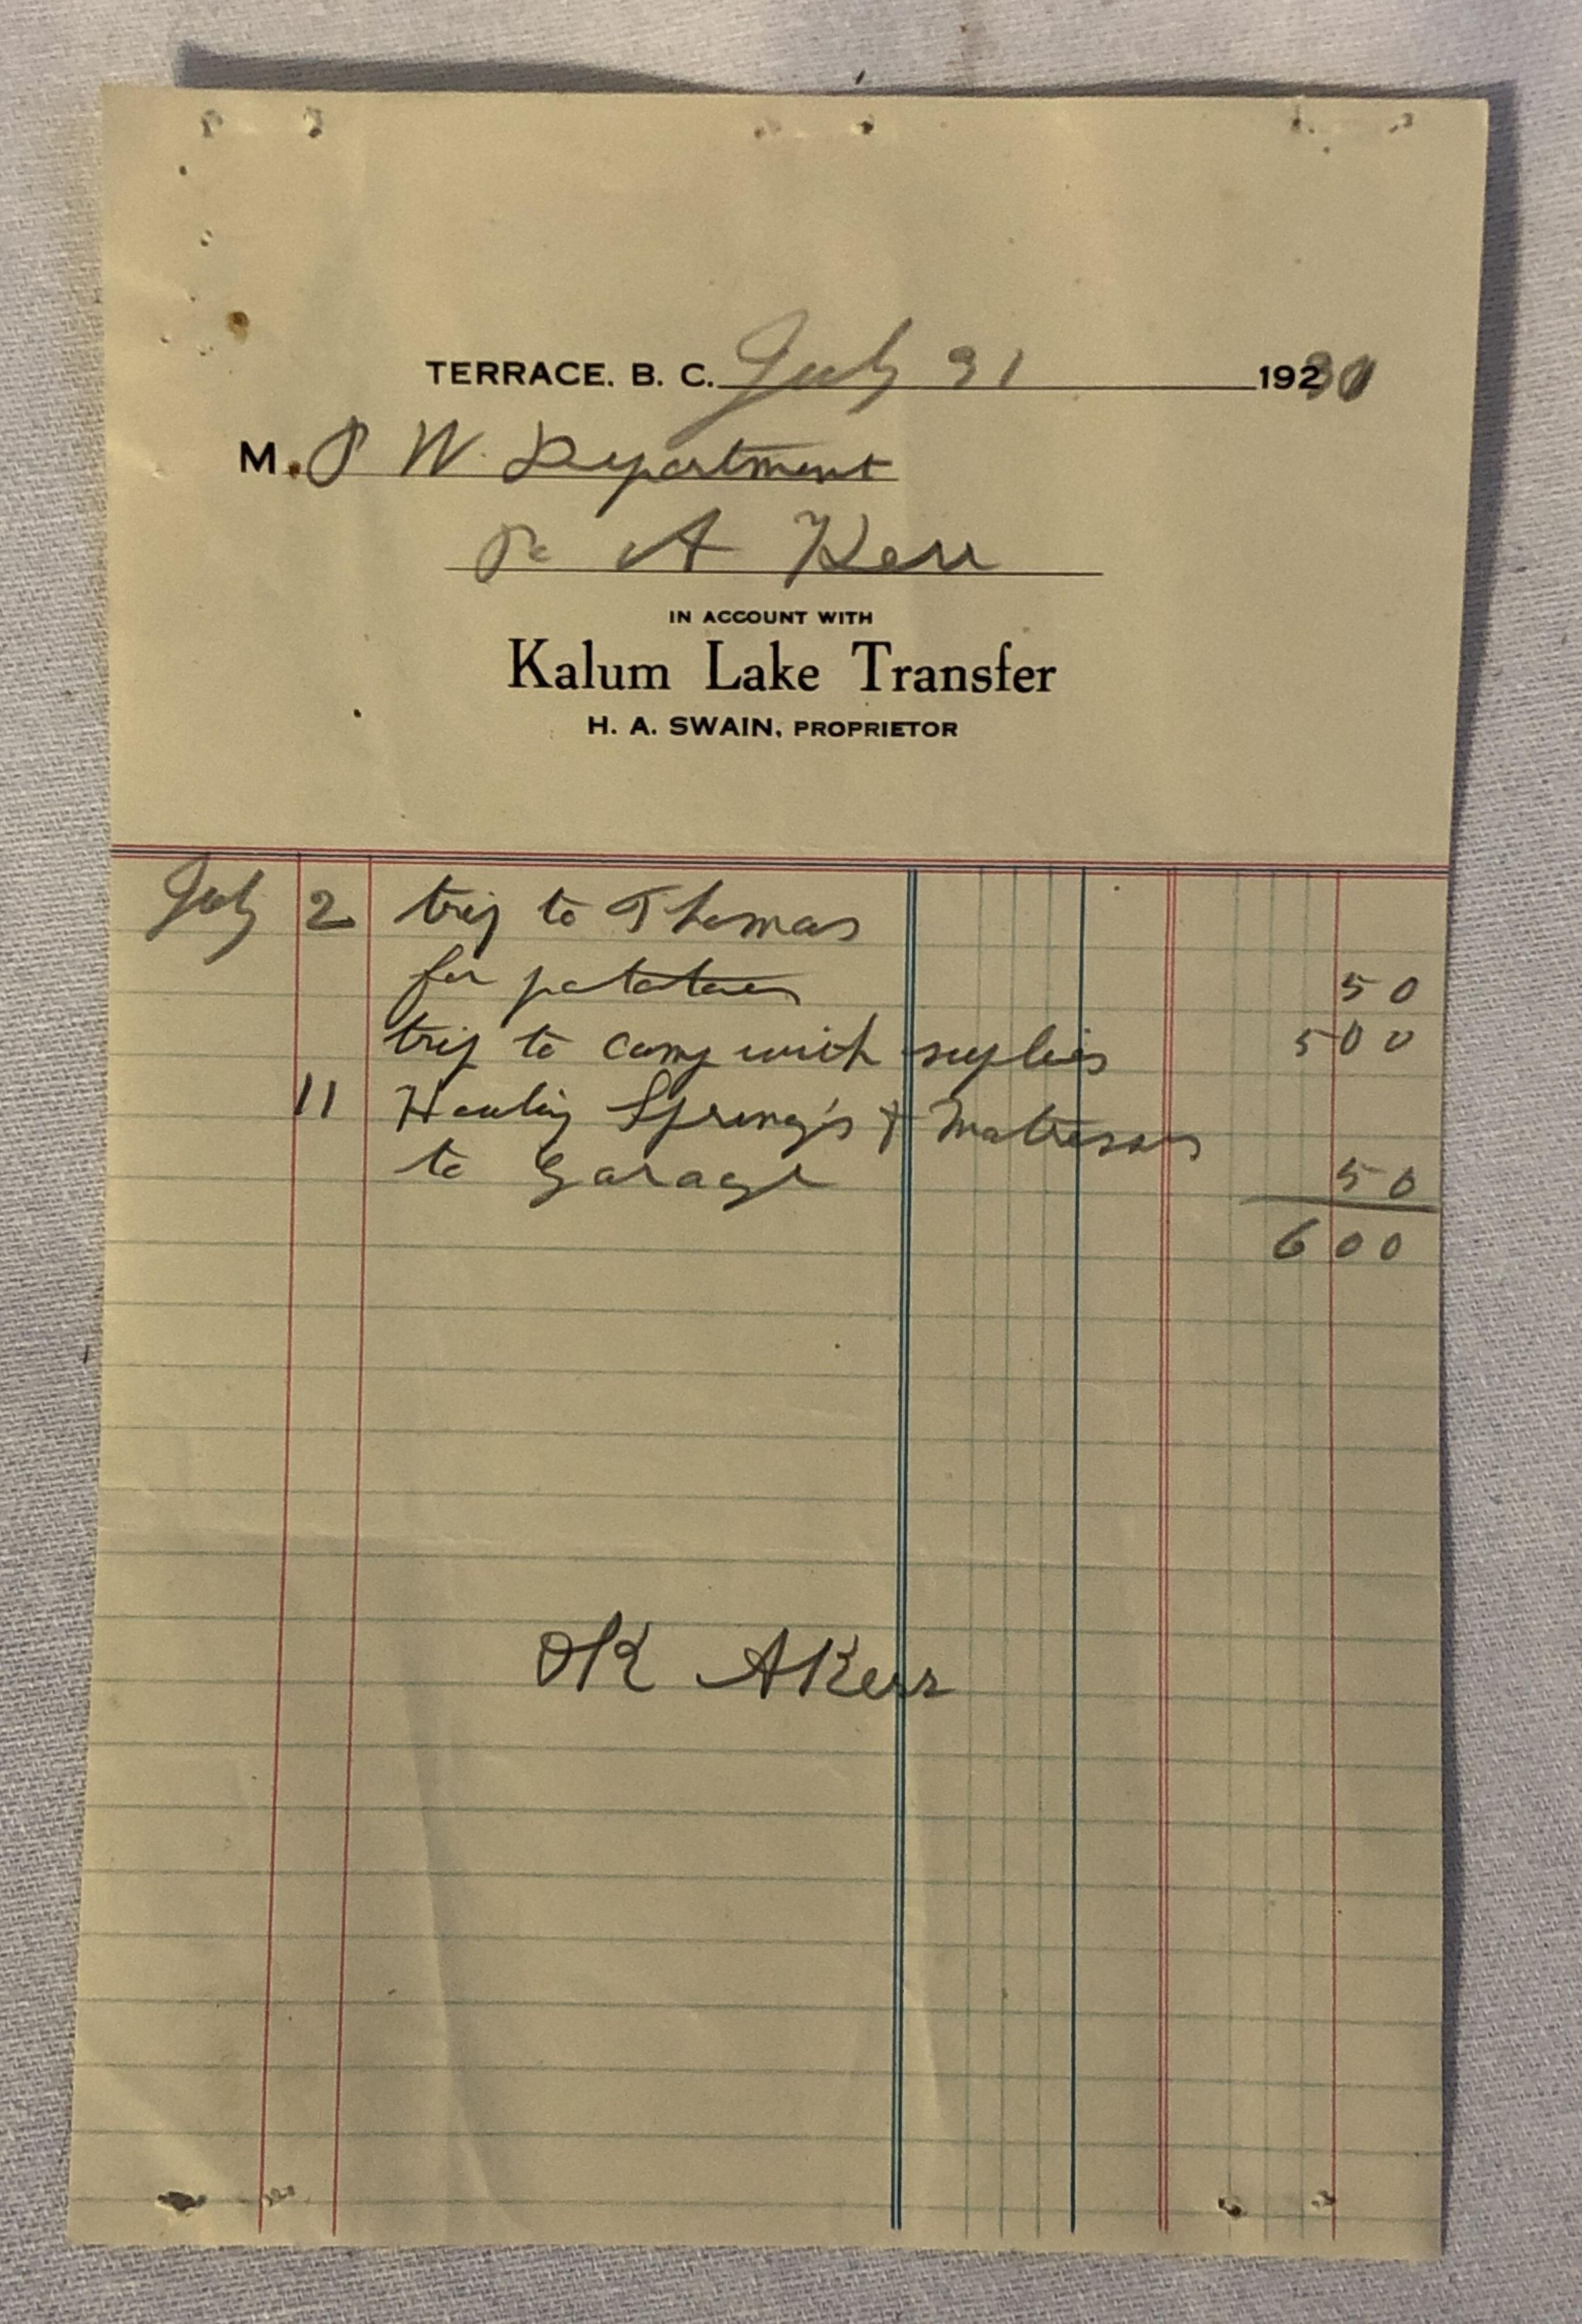 TERRACE. B. C. July 31 1930
M. P W. Department
A Kerr
IN ACCOUNT WITH
Kalum Lake Transfer
H. A. SWAIN, PROPRIETOR
July 2 trip to Thomas
for potatoes 50
trip to camp with suplies 500
11 Hauling Spring's + Matresses
to Garage 50
600
OK AKerr